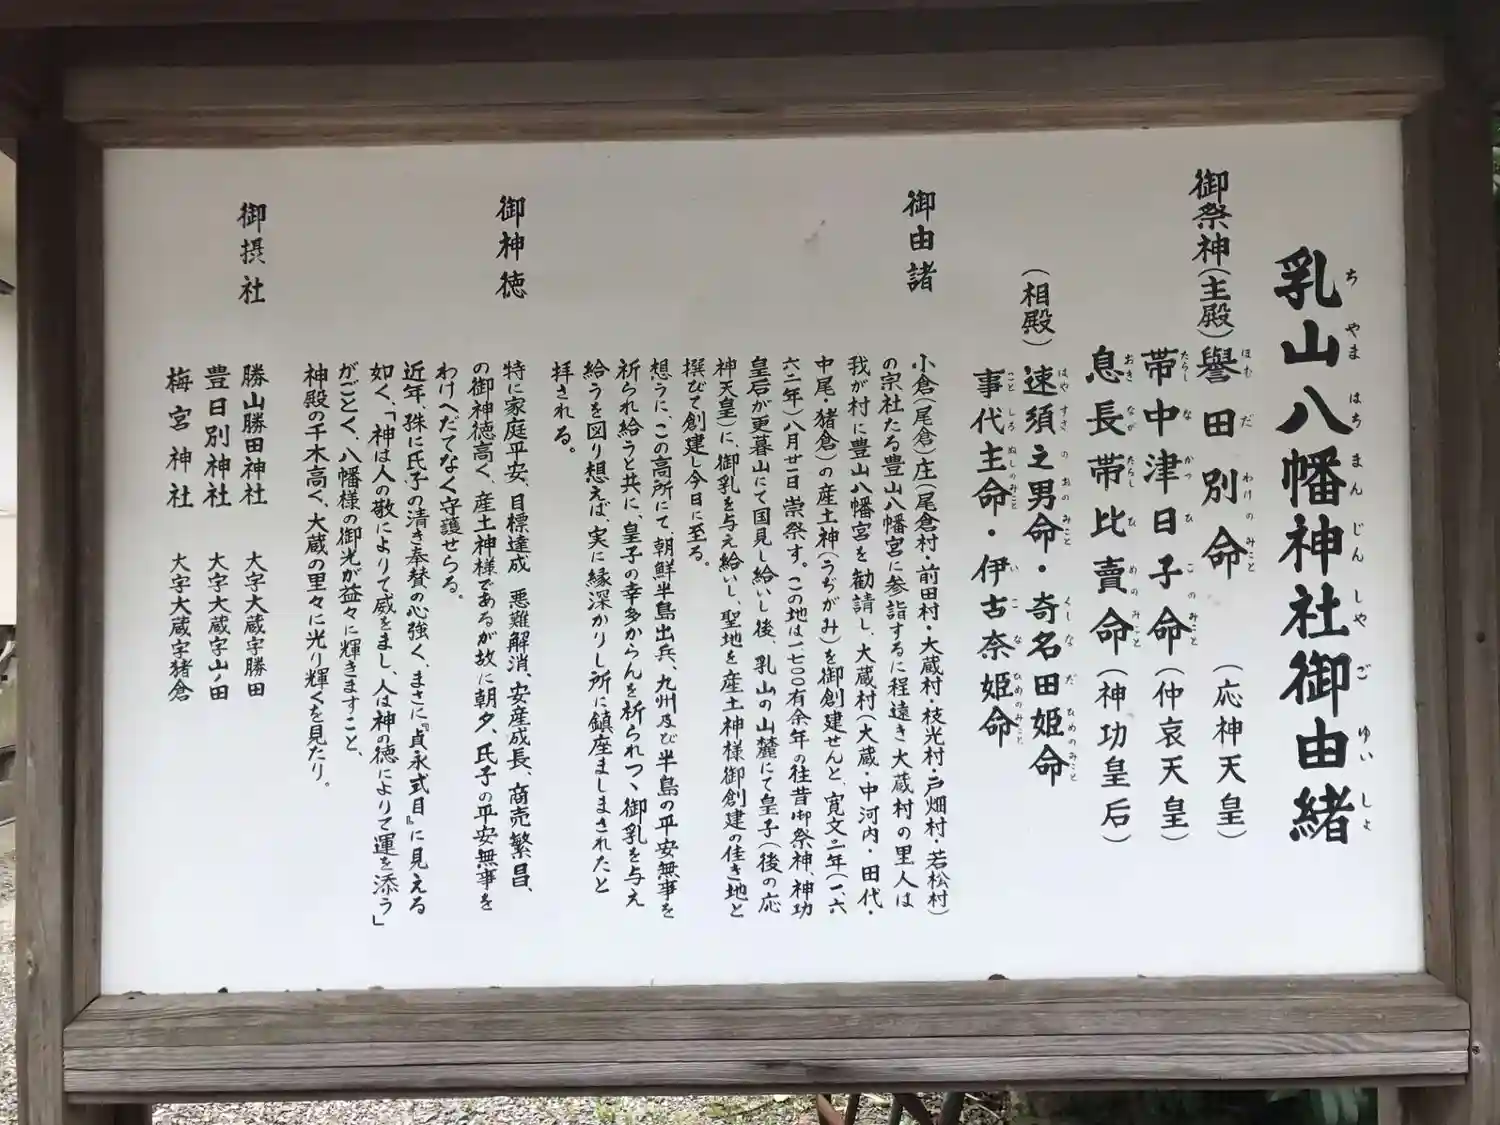 乳山八幡神社御由緒
ちやまはちまんじんしやごゆいしょ
御祭神(主殿)譽田別命(応神天皇)
ほむだわけのみこと
帯中津日子命(仲哀天皇)
たらしなかつひこのみこと
息長帯比賣命(神功皇后)
おきながたらしひめのみこと
(相殿)速須之男命・奇名田姫命
はやすさのおのみこと くしなだひめのみこと
事代主命・伊古奈姫命
ことしろぬしのみこと いこなひめのみこと
御由諸
小倉(尾倉)庄(尾倉村・前田村・大蔵村・枝光村・戸畑村・若松村)
の宗社たる豊山八幡宮に参詣するに程遠き大蔵村の里人は
我が村に豊山八幡宮を勧請し、大蔵村(大蔵・中河内・田代・
中尾・猪倉)の産土神(うぢがみ)を御創建せんと、寛文二年(一、六
六二年)八月廿一日崇祭す。この地は一、七〇〇有余年の往昔御祭神、神功
皇后が更暮山にて国見し給いし後、乳山の山麓にて皇子(後の応
神天皇)に、御乳を与え給いし、聖地を産土神様御創建の佳き地と
撰びて創建し今日に至る。
想うに、この高所にて、朝鮮半島出兵、九州及び半島の平安無事を
祈られ給うと共に、皇子の幸多からんを祈られつヽ御乳を与え
給うを図り想えば、実に縁深かりし所に鎮座ましまされたと
拝される。
御神徳
特に家庭平安、目標達成 悪難解消、安産成長、商売繁昌、
の御神徳高く、産土神様であるが故に朝夕、氏子の平安無事を
わけへだてなく守護せらる。
近年、殊に氏子の清き奉賛の心強く、まさに『貞永式目』に見える
如く、「神は人の敬によりて威をまし、人は神の徳によりて運を添う」
がごとく、八幡様の御光が益々に輝きますこと、
神殿の千木高く、大蔵の里々に光り輝くを見たり。
御摂社
勝山勝田神社 大字大蔵字勝田
豊日別神社 大字大蔵字山ノ田
梅宮神社 大字大蔵字猪倉